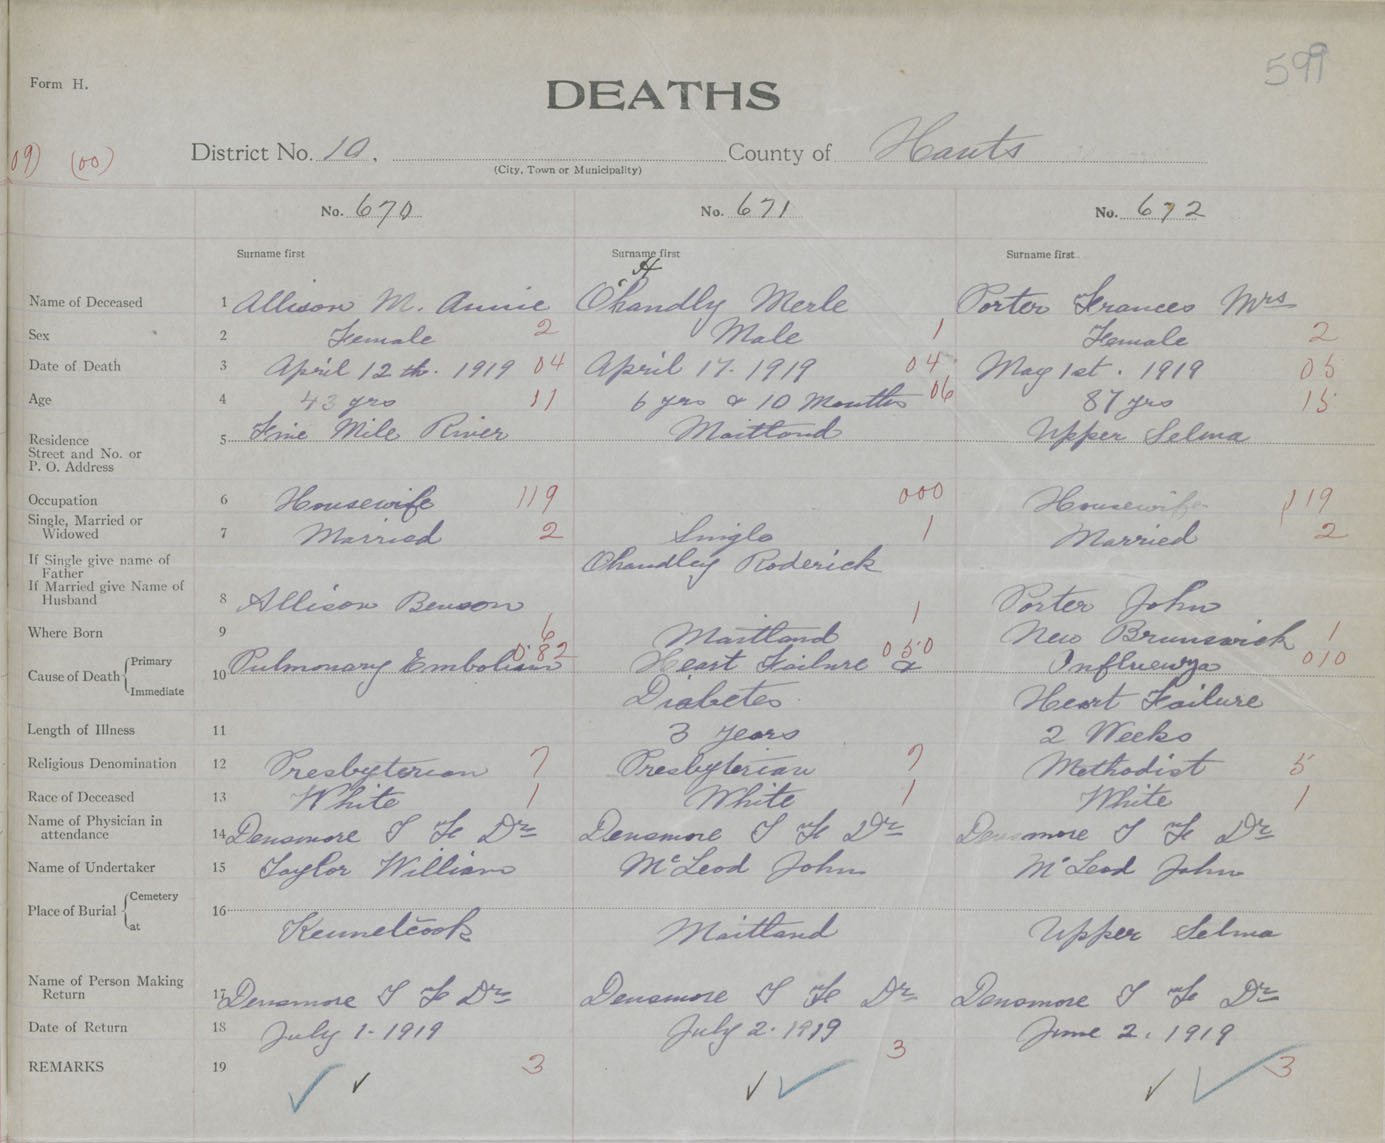 599
Form H.
DEATHS
09) (00) District No. 10, County of Hants
(City, Town or Municipality)
No. 670 No. 671 No. 672
Surname first Surname first Surname first
H
Name of Deceased 1 Allison M. Annie O'handly Merle Porter Frances Mrs
Sex 2 Female 2 Male 1 Female 2
Date of Death 3 April 12th. 1919 04 April 17. 1919 04 May 1st. 1919 05
Age 4 43 yrs 11 6 yrs & 10 Months 06 87 yrs 15
Residence 5 Five Mile River Maitland Upper Selma
Street and No. or
P. O. Address
Occupation 6 Housewife 119 000 Housewife 119
Single, Married or
Widowed 7 Married 2 Single 1 Married 2
If Single give name of
Father Chandley Roderick
If Married give Name of
Husband 8 Allison Benson Porter John
Where Born 9 6 Maitland 1 New Brunswick 1
Cause of Death Primary 10 Pulmonary Embolism 082 Heart Failure & 050 Influenza 010
Immediate Diabetes Heart Failure
Length of Illness 11 3 years 2 Weeks
Religious Denomination 12 Presbyterian 7 Presbyterian 7 Methodist 5
Race of Deceased 13 White 1 White 1 White 1
Name of Physician in
attendance 14 Densmore I F Dr Densmore I F Dr Densmore I F Dr
Name of Undertaker 15 Taylor William McLeod John McLeod John
Place of Burial Cemetery 16
at Kennetcook Maitland Upper Selma
Name of Person Making
Return 17 Densmore I F Dr Densmore I F Dr Densmore I F Dr
Date of Return 18 July 1. 1919 July 2. 1919 June 2. 1919
REMARKS 19 3 3 3